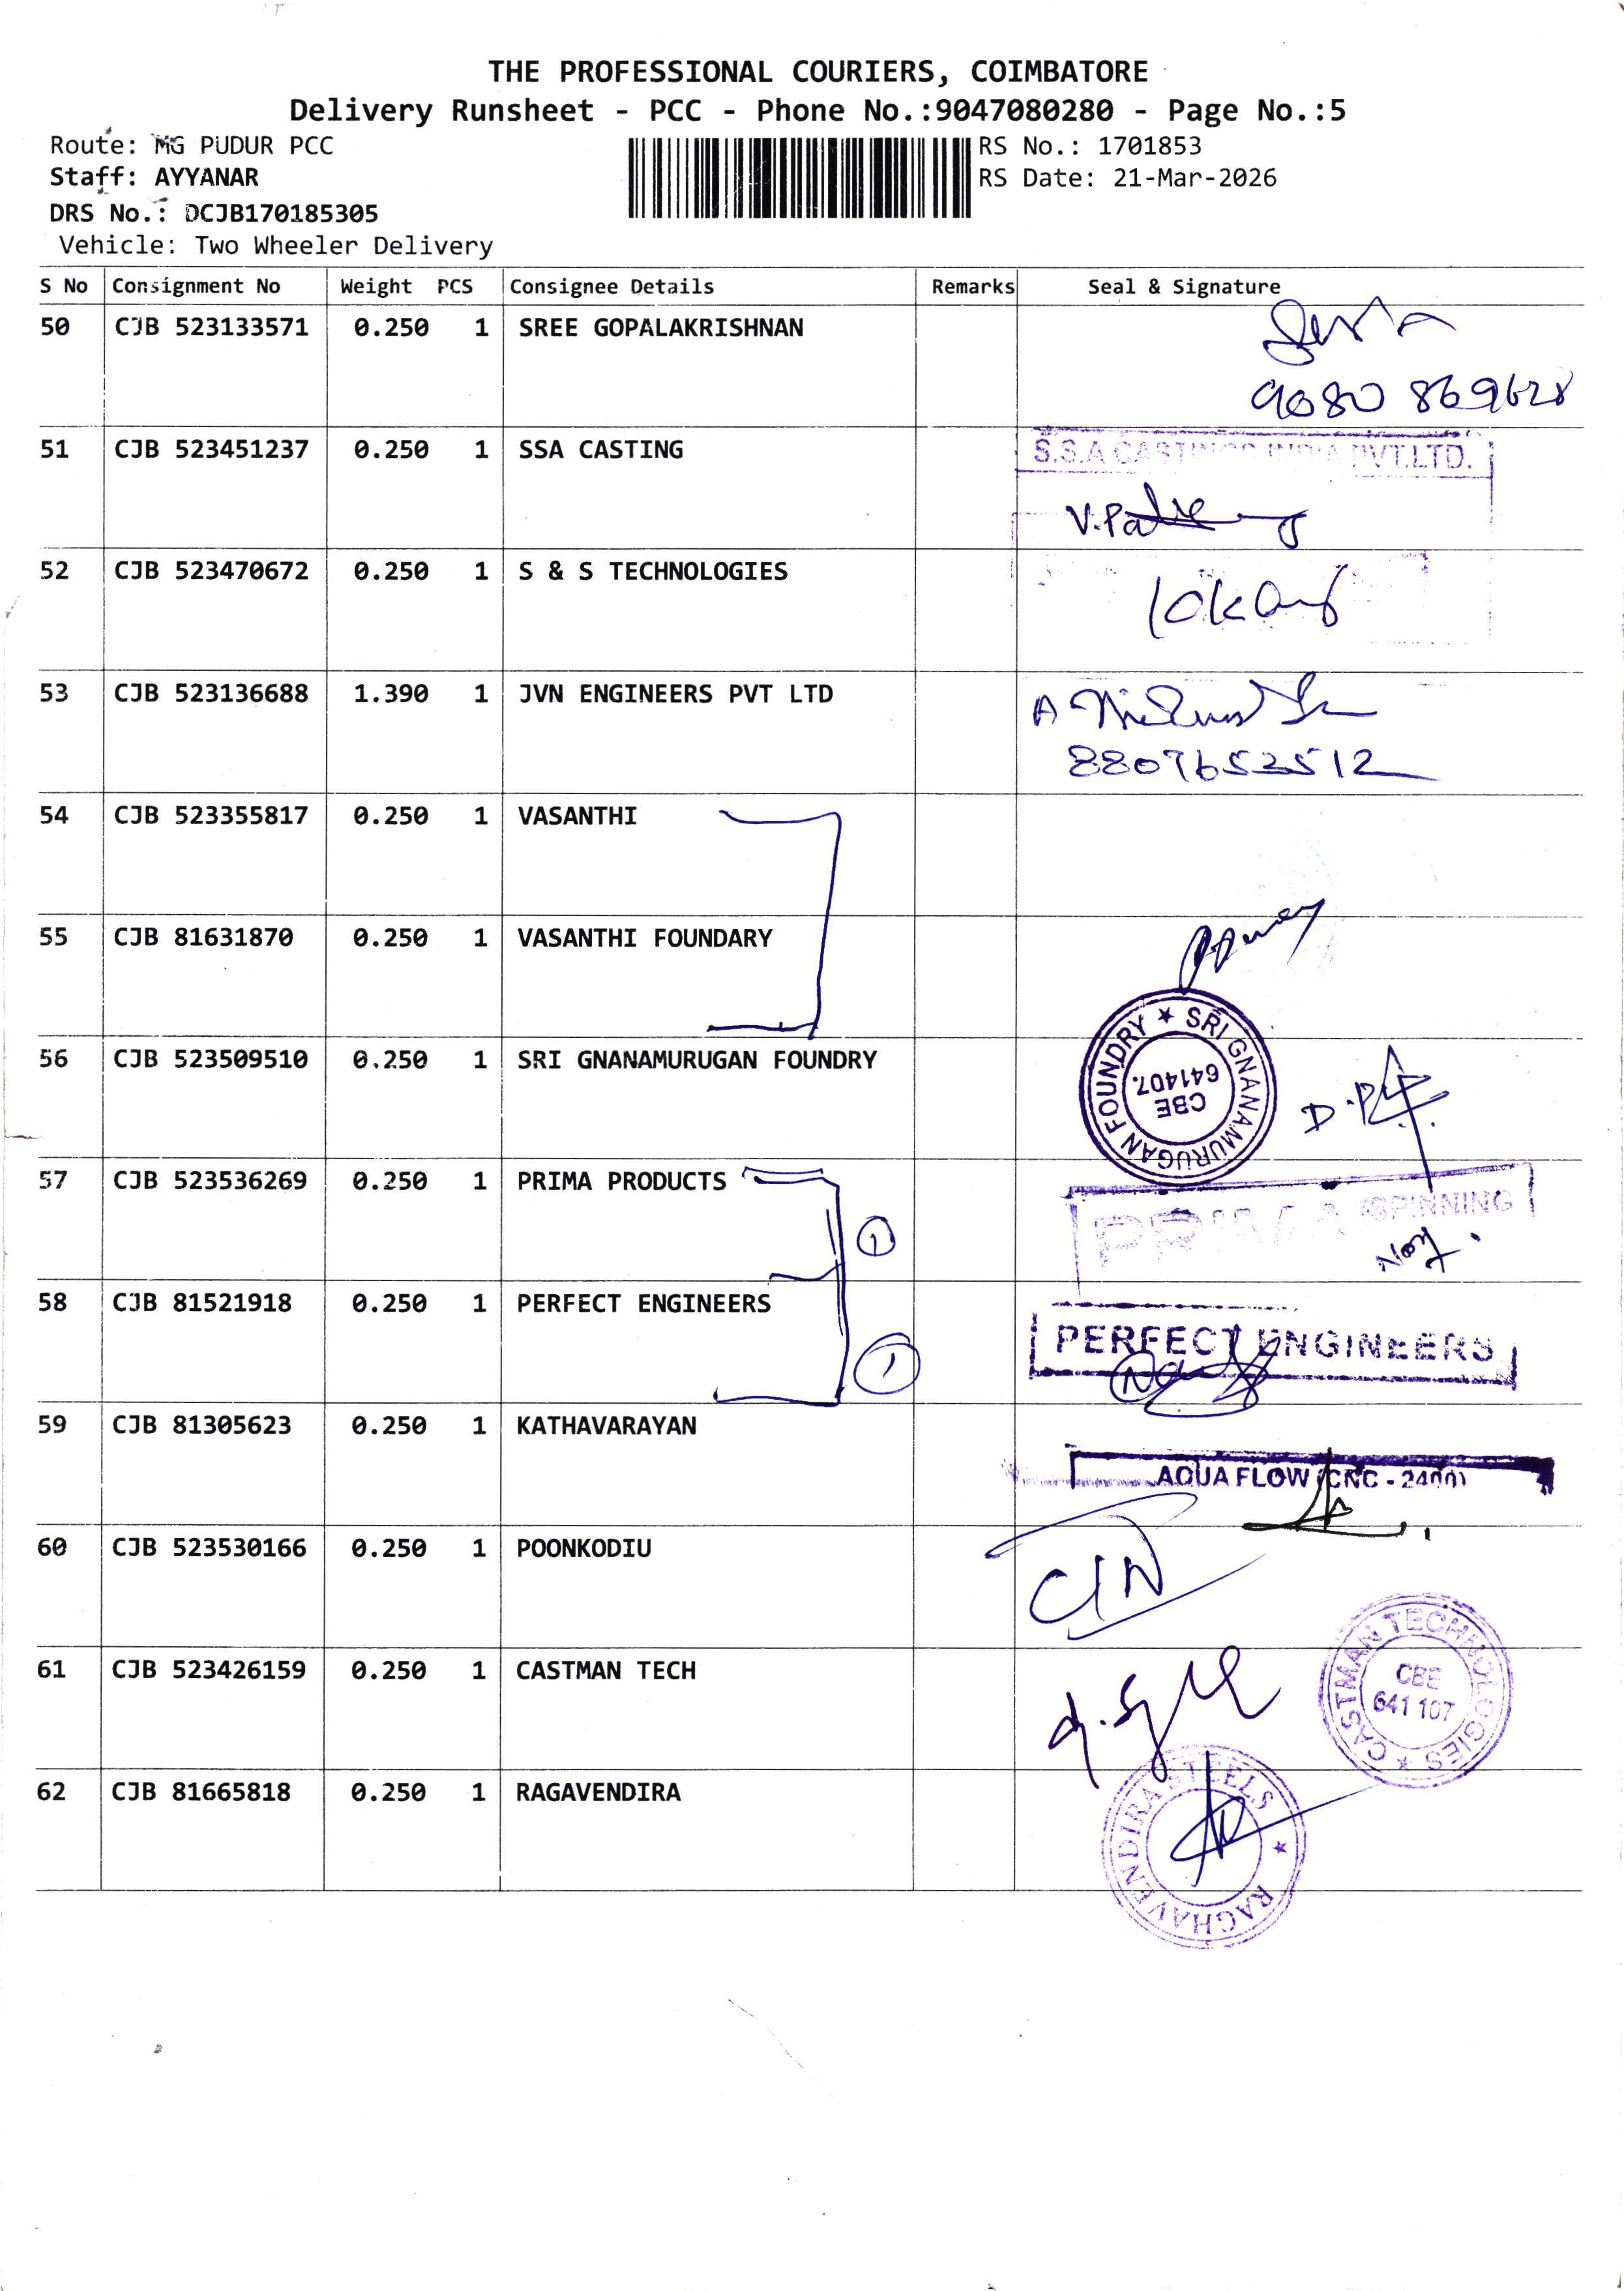 THE PROFESSIONAL COURIERS, COIMBATORE
Delivery Runsheet - PCC - Phone No.:9047080280 - Page No.:5
Route: MG PUDUR PCC
RS No.: 1701853
Staff: AYYANAR
RS Date: 21-Mar-2026
DRS No.: DCJB170185305
Vehicle: Two Wheeler Delivery
S No Consignment No Weight PCS Consignee Details Remarks Seal & Signature
50 CJB 523133571 0.250 1 SREE GOPALAKRISHNAN
9080 869628
51 CJB 523451237 0.250 1 SSA CASTING
S.S.A CASTINGS INDIA PVT.LTD.
52 CJB 523470672 0.250 1 S & S TECHNOLOGIES
53 CJB 523136688 1.390 1 JVN ENGINEERS PVT LTD
8807652512
54 CJB 523355817 0.250 1 VASANTHI
55 CJB 81631870 0.250 1 VASANTHI FOUNDARY
56 CJB 523509510 0.250 1 SRI GNANAMURUGAN FOUNDRY
SRI GNANAMURUGAN FOUNDRY
CBE
641407.
57 CJB 523536269 0.250 1 PRIMA PRODUCTS
1
PRIMA SPINNING
58 CJB 81521918 0.250 1 PERFECT ENGINEERS
1
PERFECT ENGINEERS
59 CJB 81305623 0.250 1 KATHAVARAYAN
AQUA FLOW (CNC - 2400)
60 CJB 523530166 0.250 1 POONKODIU
61 CJB 523426159 0.250 1 CASTMAN TECH
CASTMAN TECHNOLOGIES
CBE
641 107
62 CJB 81665818 0.250 1 RAGAVENDIRA
RAGHAVENDIRA STEELS